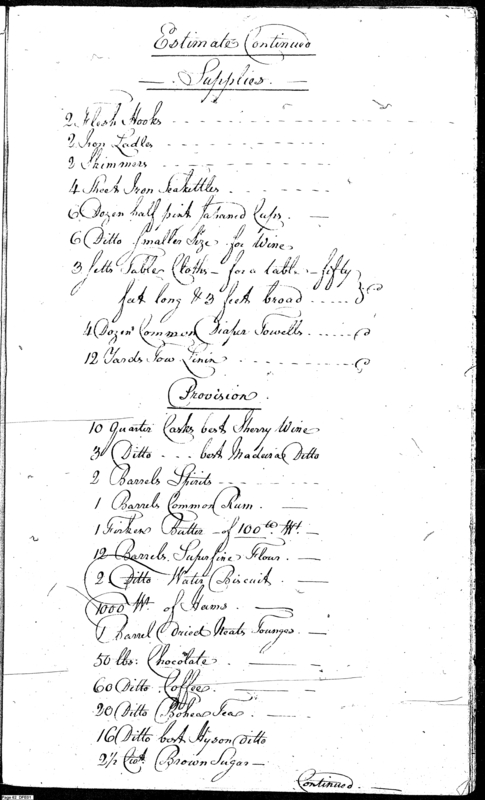 Estimate Continued
Supplies
2 Flesh Hooks
2 Iron Ladles
2 Skimmers
4 Sheet Iron Teakettles
6 Dozen half pint Japaned Cups
6 Ditto smaller Size for Wine
3 setts Table Cloths – for a table – fifty
feet long & 3 feet broad
4 Dozen Common Diaper Towells
12 Yards Tow Linin
Provision
10 Quarter Casks best Sherry Wine
3 Ditto best Madeira Ditto
2 Barrels Spirits
1 Barrels Common Rum
1 Firken Butter of 100 Wt
12 Barrels Superfine Flour
2 Ditto Water Biscuit
1000 Wt of Hams
1 Barrel Dried Neats Tounges
50 lbs: Chocolate
60 Ditto Coffee
20 Ditto Bohea Tea
16 Ditto best Hyson Ditto
2½ Cwt Brown Sugar
Continued